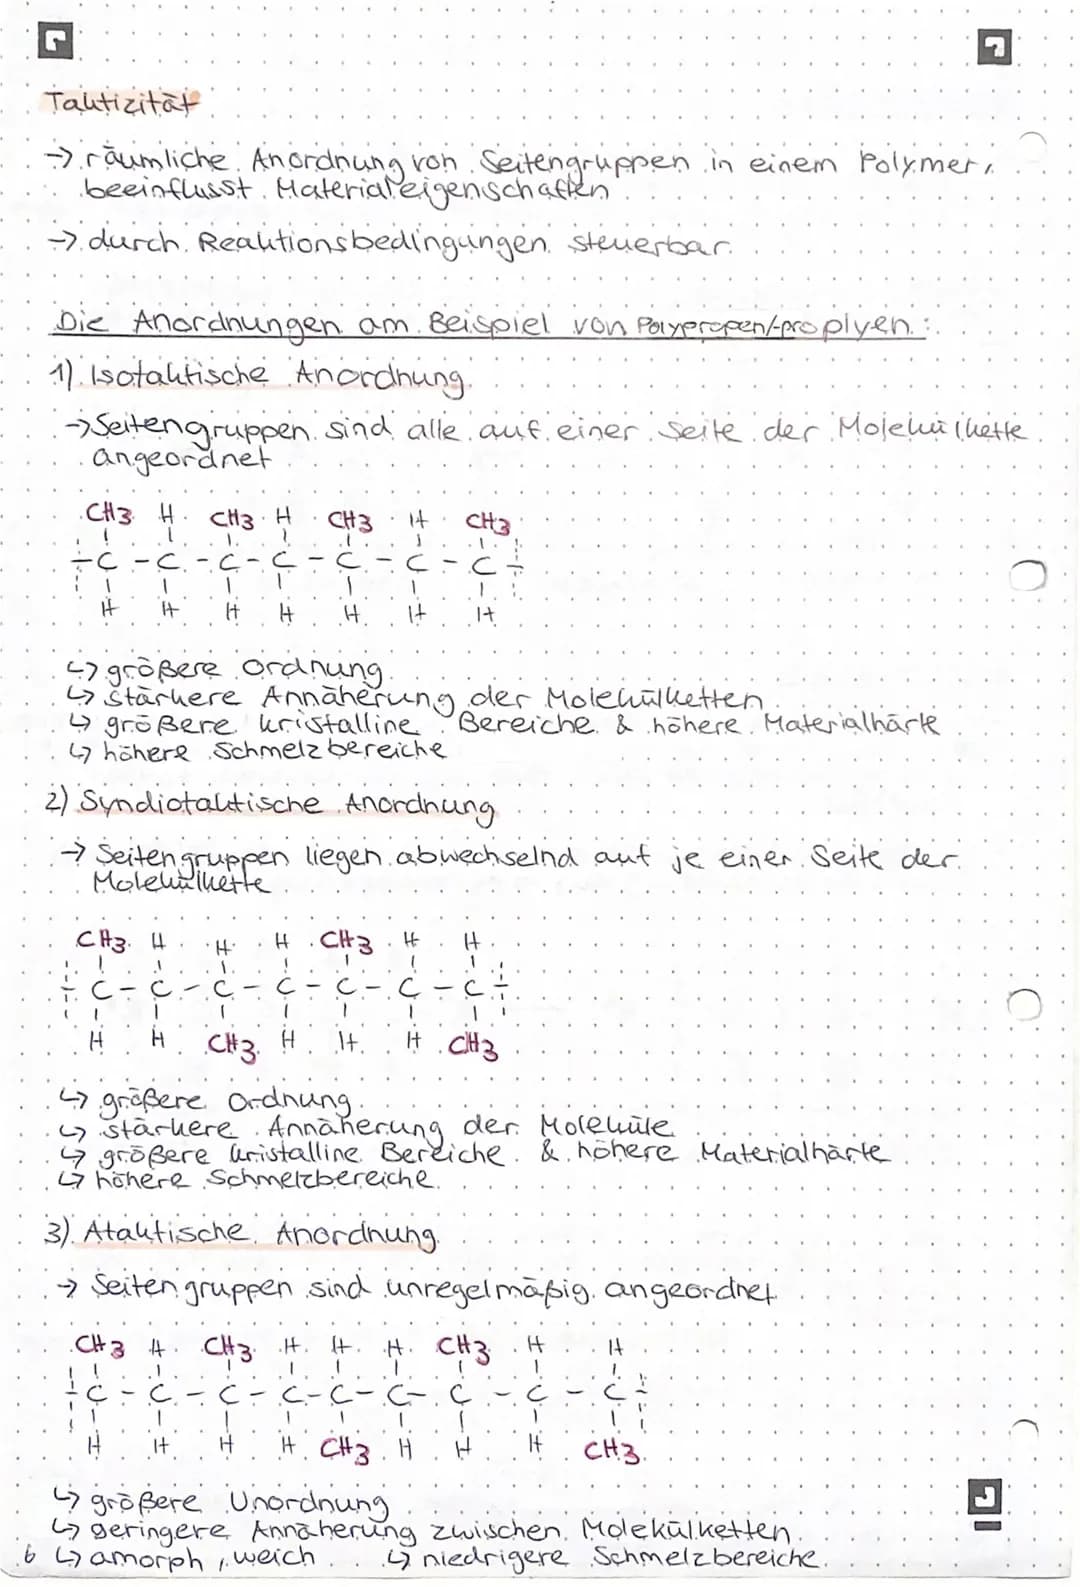 Taktizität
→ räumliche Anordnung von Seitengruppen in einem Polymer,
beeinflusst Materialeigenschaften
→ durch Reaktionsbedingungen steuerbar
Die Anordnungen am Beispiel von Polypropen/-proplyen:
1) Isotaktische Anordnung
→ Seitengruppen sind alle auf einer Seite der Molekülkette
angeordnet
CH3 H CH3 H CH3 H CH3
-C-C-C-C-C-C-C-
H H H H H H H
↳ größere Ordnung
↳ stärkere Annäherung der Molekülketten
↳ größere kristalline Bereiche & höhere Materialhärte
↳ höhere Schmelzbereiche
2) Syndiotaktische Anordnung
→ Seitengruppen liegen abwechselnd auf je einer Seite der
Molekülkette
CH3 H H H CH3 H H
-C-C-C-C-C-C-C-
H H CH3 H H H CH3
↳ größere Ordnung
↳ stärkere Annäherung der Moleküle
↳ größere kristalline Bereiche & höhere Materialhärte
↳ höhere Schmelzbereiche
3) Ataktische Anordnung
→ Seitengruppen sind unregelmäßig angeordnet
CH3 H CH3 H H H CH3 H H
-C-C-C-C-C-C-C-C-C-
H H H H CH3 H H H CH3
↳ größere Unordnung
↳ geringere Annäherung zwischen Molekülketten
6 ↳ amorph, weich ↳ niedrigere Schmelzbereiche